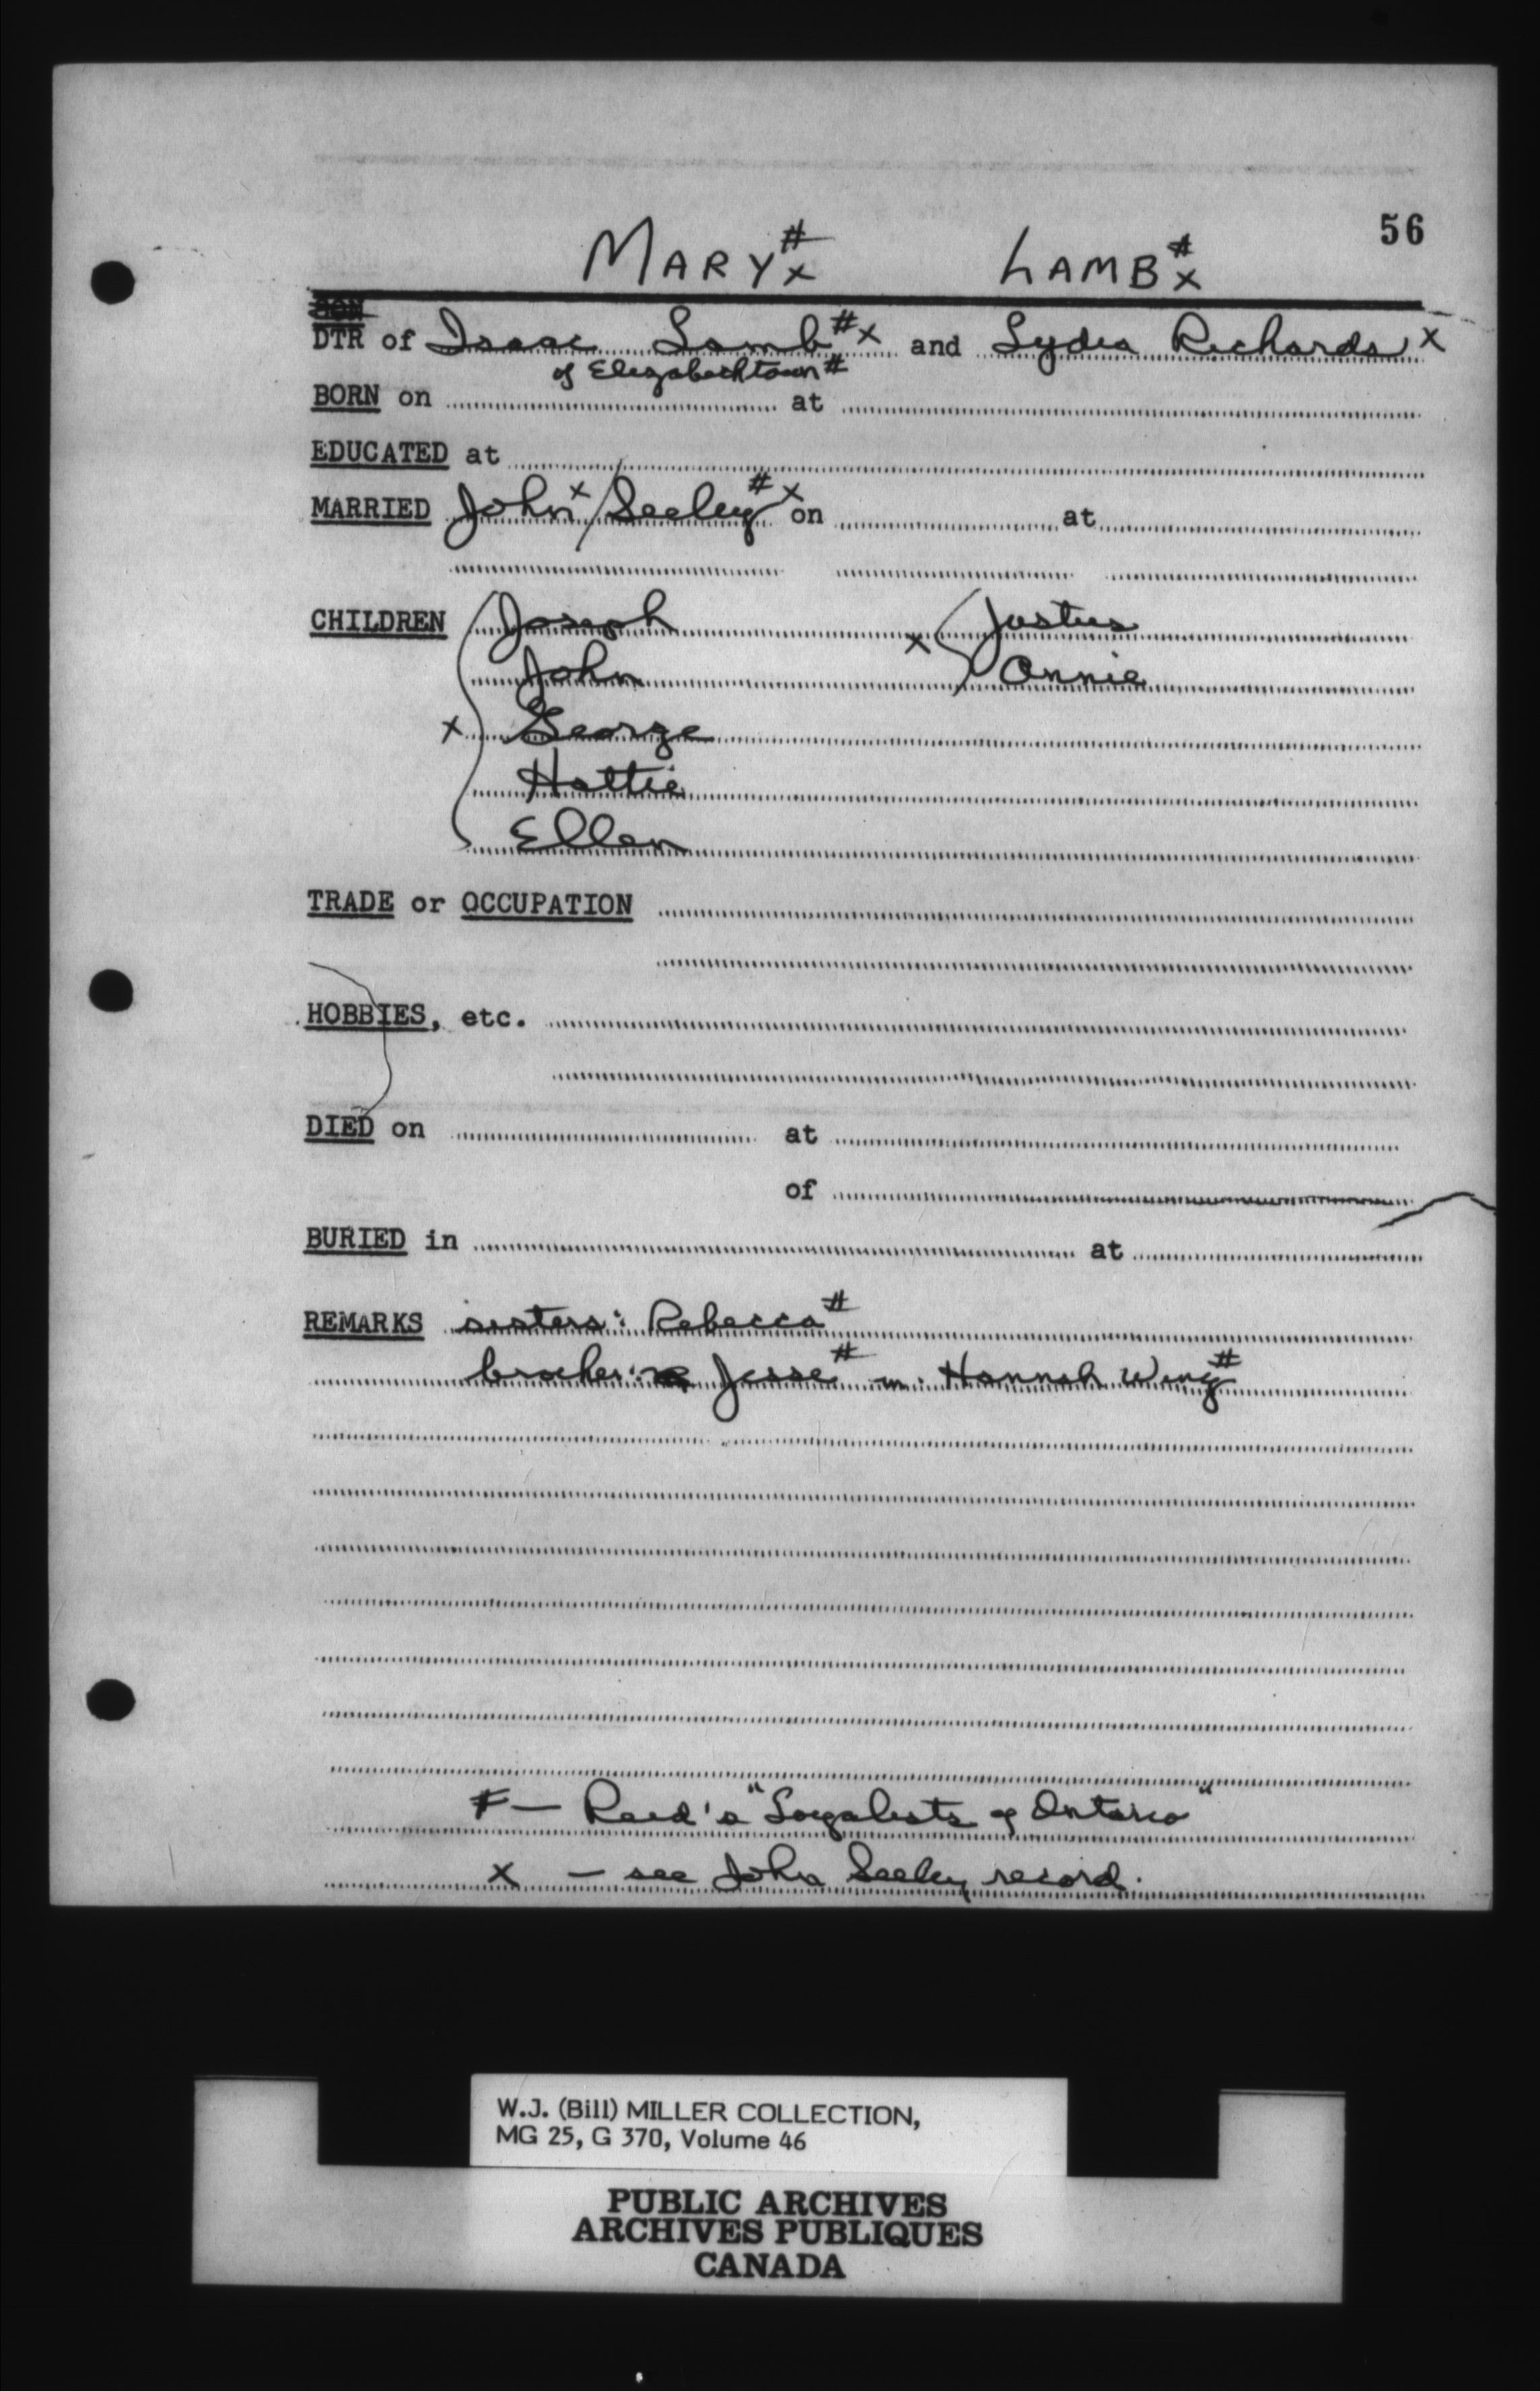 56
MARY#x LAMB#x
SON
DTR of Isaac Lamb#x and Lydia Richards x
of Elizabethtown#
BORN on at
EDUCATED at
MARRIED John x / Seeley # x on at
CHILDREN Joseph x Justus
John Annie
x George
Hattie
Ellen
TRADE or OCCUPATION
HOBBIES, etc.
DIED on at
of
BURIED in at
REMARKS sisters: Rebecca#
brother: Jesse# m. Hannah Wing#
# — Reid's "Loyalists of Ontario"
x — see John Seeley record.
W.J. (Bill) MILLER COLLECTION,
MG 25, G 370, Volume 46
PUBLIC ARCHIVES
ARCHIVES PUBLIQUES
CANADA